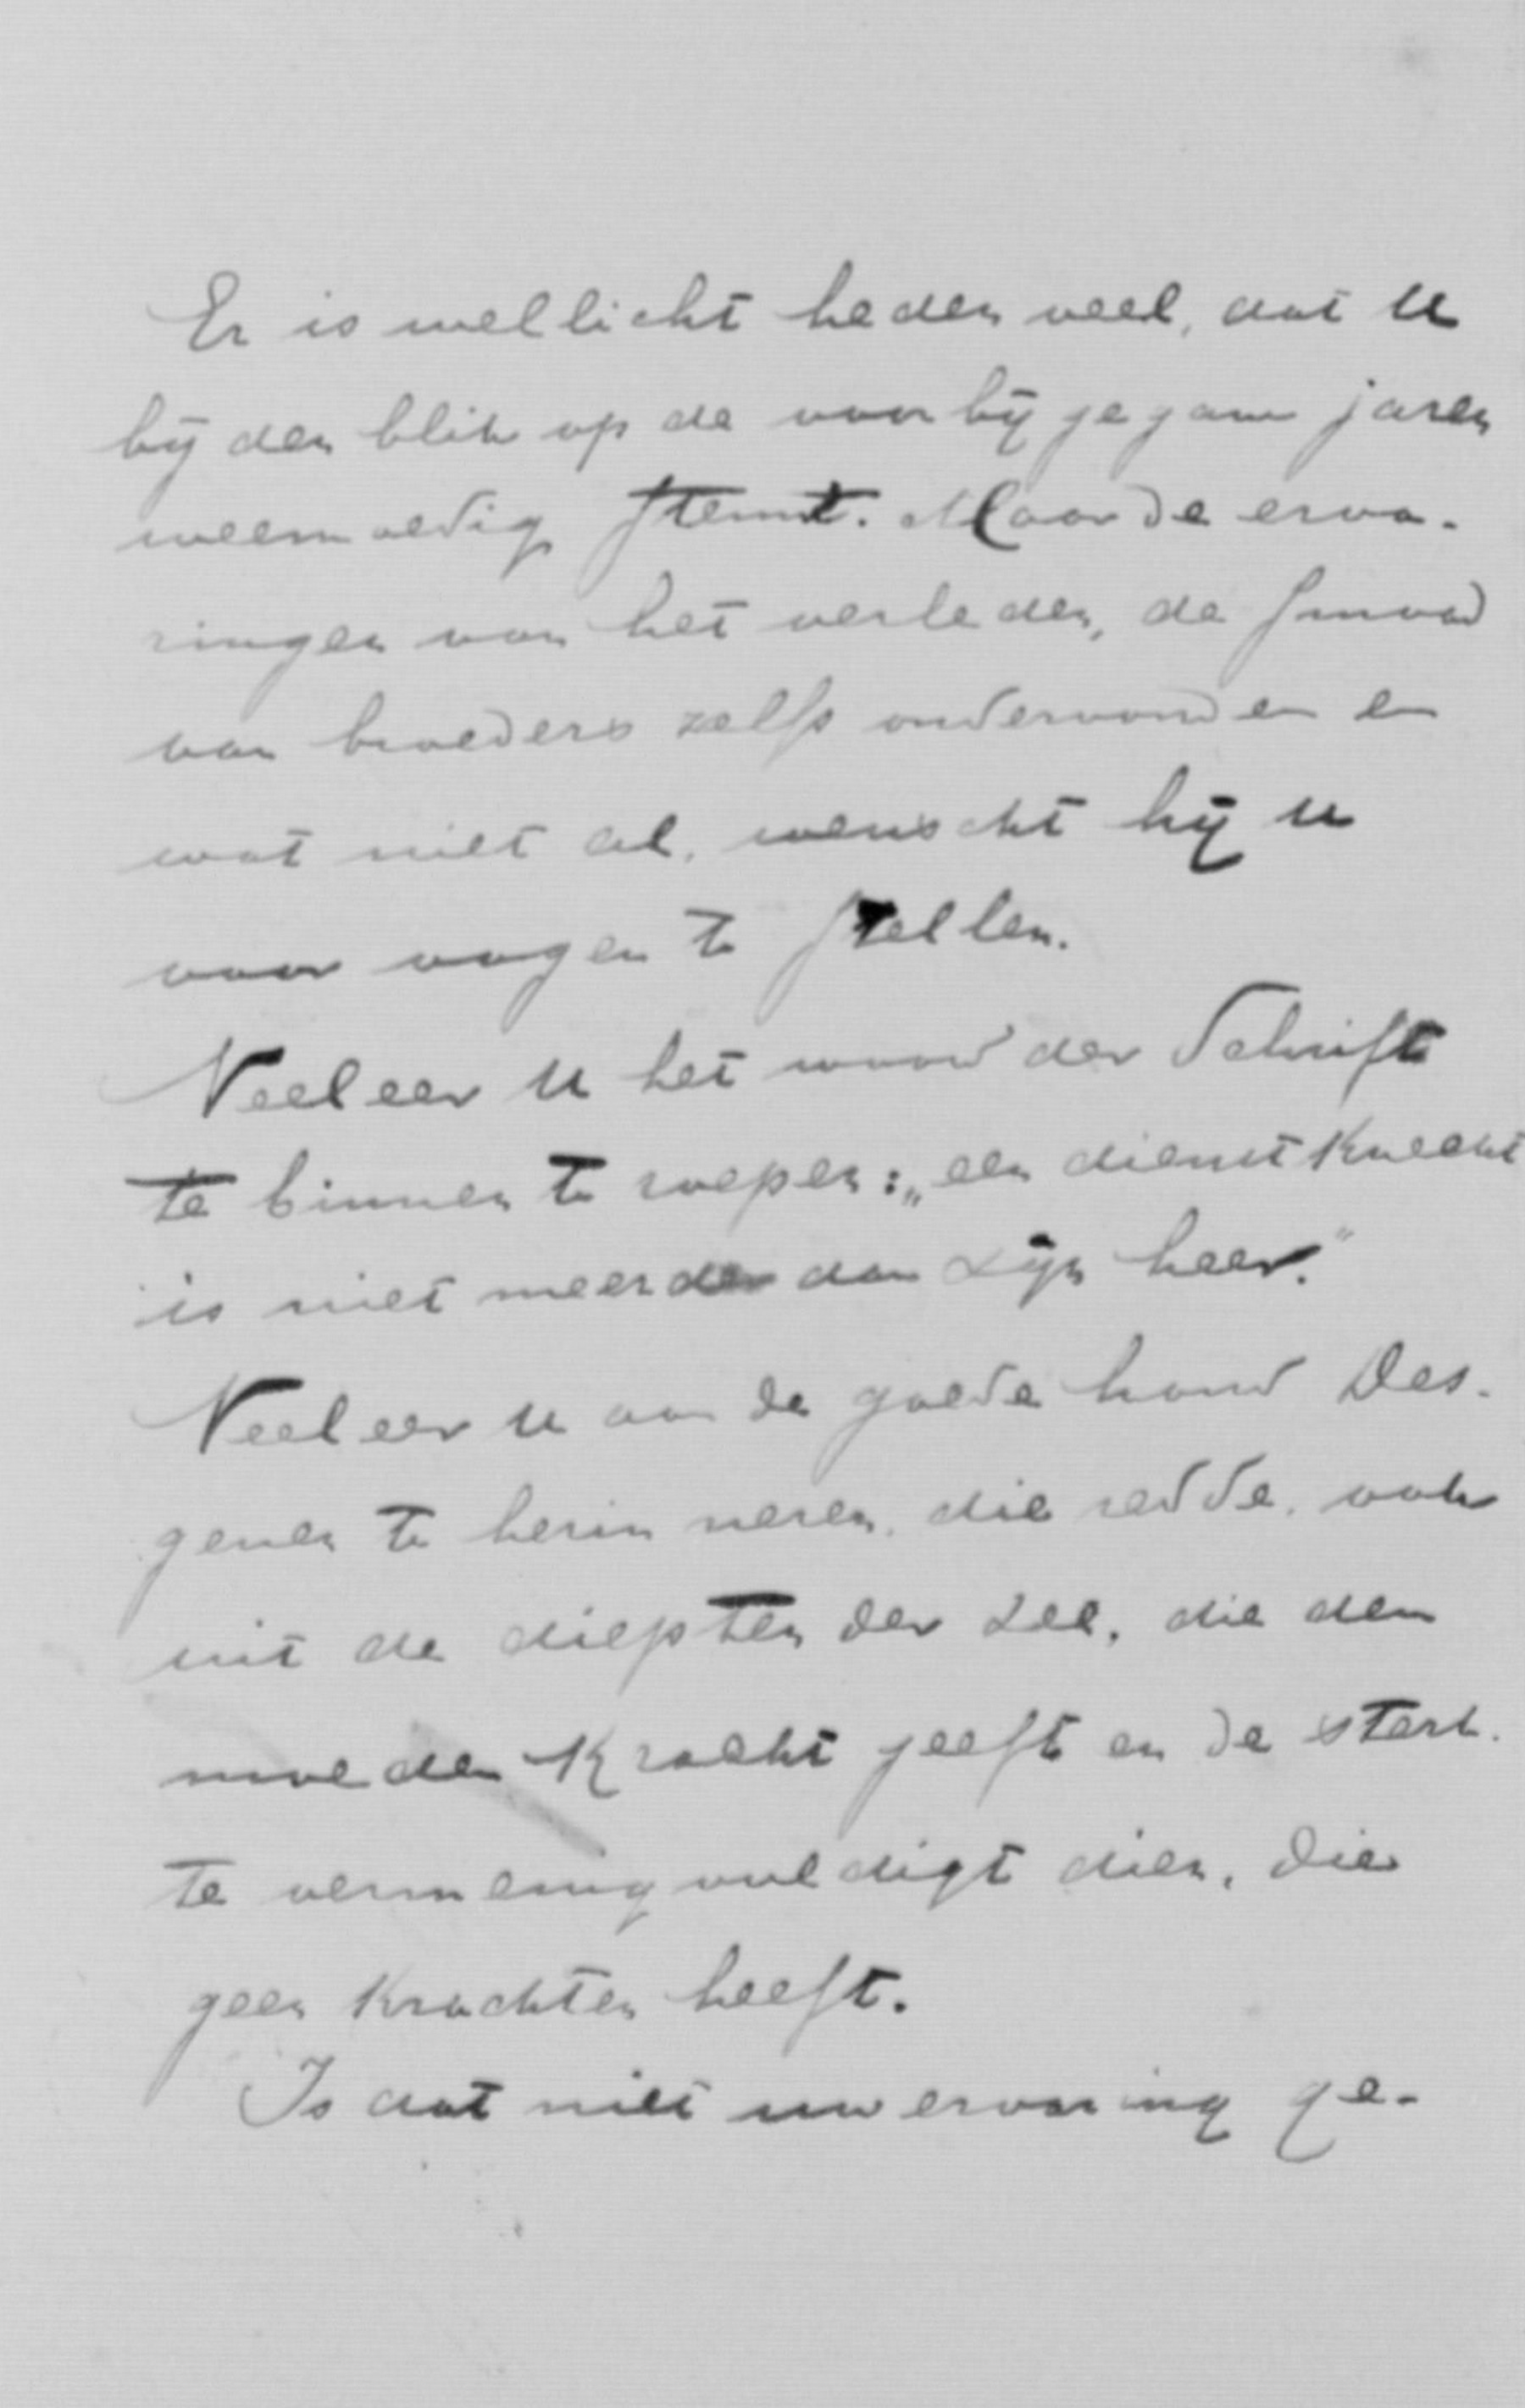 Er is wellicht heden veel, dat U
bij den blik op de voorbijgegane jaren
weemoedig stemt. Maar de erva-
ringen van het verleden, de smaad
van broeders zelfs ondervonden en
wat niet al, wenscht hij U
voor oogen te stellen.
Veeleer U het woord der Schrift
te binnen te roepen: „een dienstknecht
is niet meerder dan zijn heer."
Veeleer U aan de goede hand Des-
genen te herinneren, die redde, ook
uit de diepten der zee, die den
moeden kracht geeft en de sterk-
te vermenigvuldigt dien, die
geen krachten heeft.
Is dat niet uw ervaring ge-